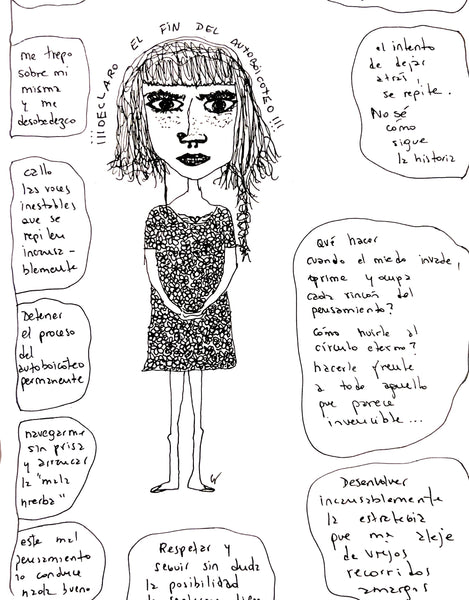 ¡¡¡DECLARO EL FIN DEL AUTOBOICOTEO!!!
me trepo
sobre mi
misma
y me
desobedezco
callo
las voces
inestables
que se
repiten
incansa-
blemente
Detener
el proceso
del
autoboicoteo
permanente
navegarme
sin prisa
y arrancar
la "mala
hierba"
este mal
pensamiento
no conduce
nada bueno
el intento
de dejar
atrás,
se repite.
No sé
como
sigue
la historia
Qué hacer
cuando el miedo invade,
oprime y ocupa
cada rincón del
pensamiento?
cómo huirle al
círculo eterno?
hacerle frente
a todo aquello
que parece
invencible...
Desenvolver
incansablemente
la estrategia
que me aleje
de viejos
recorridos
amargos
Respetar y
seguir sin duda
la posibilidad